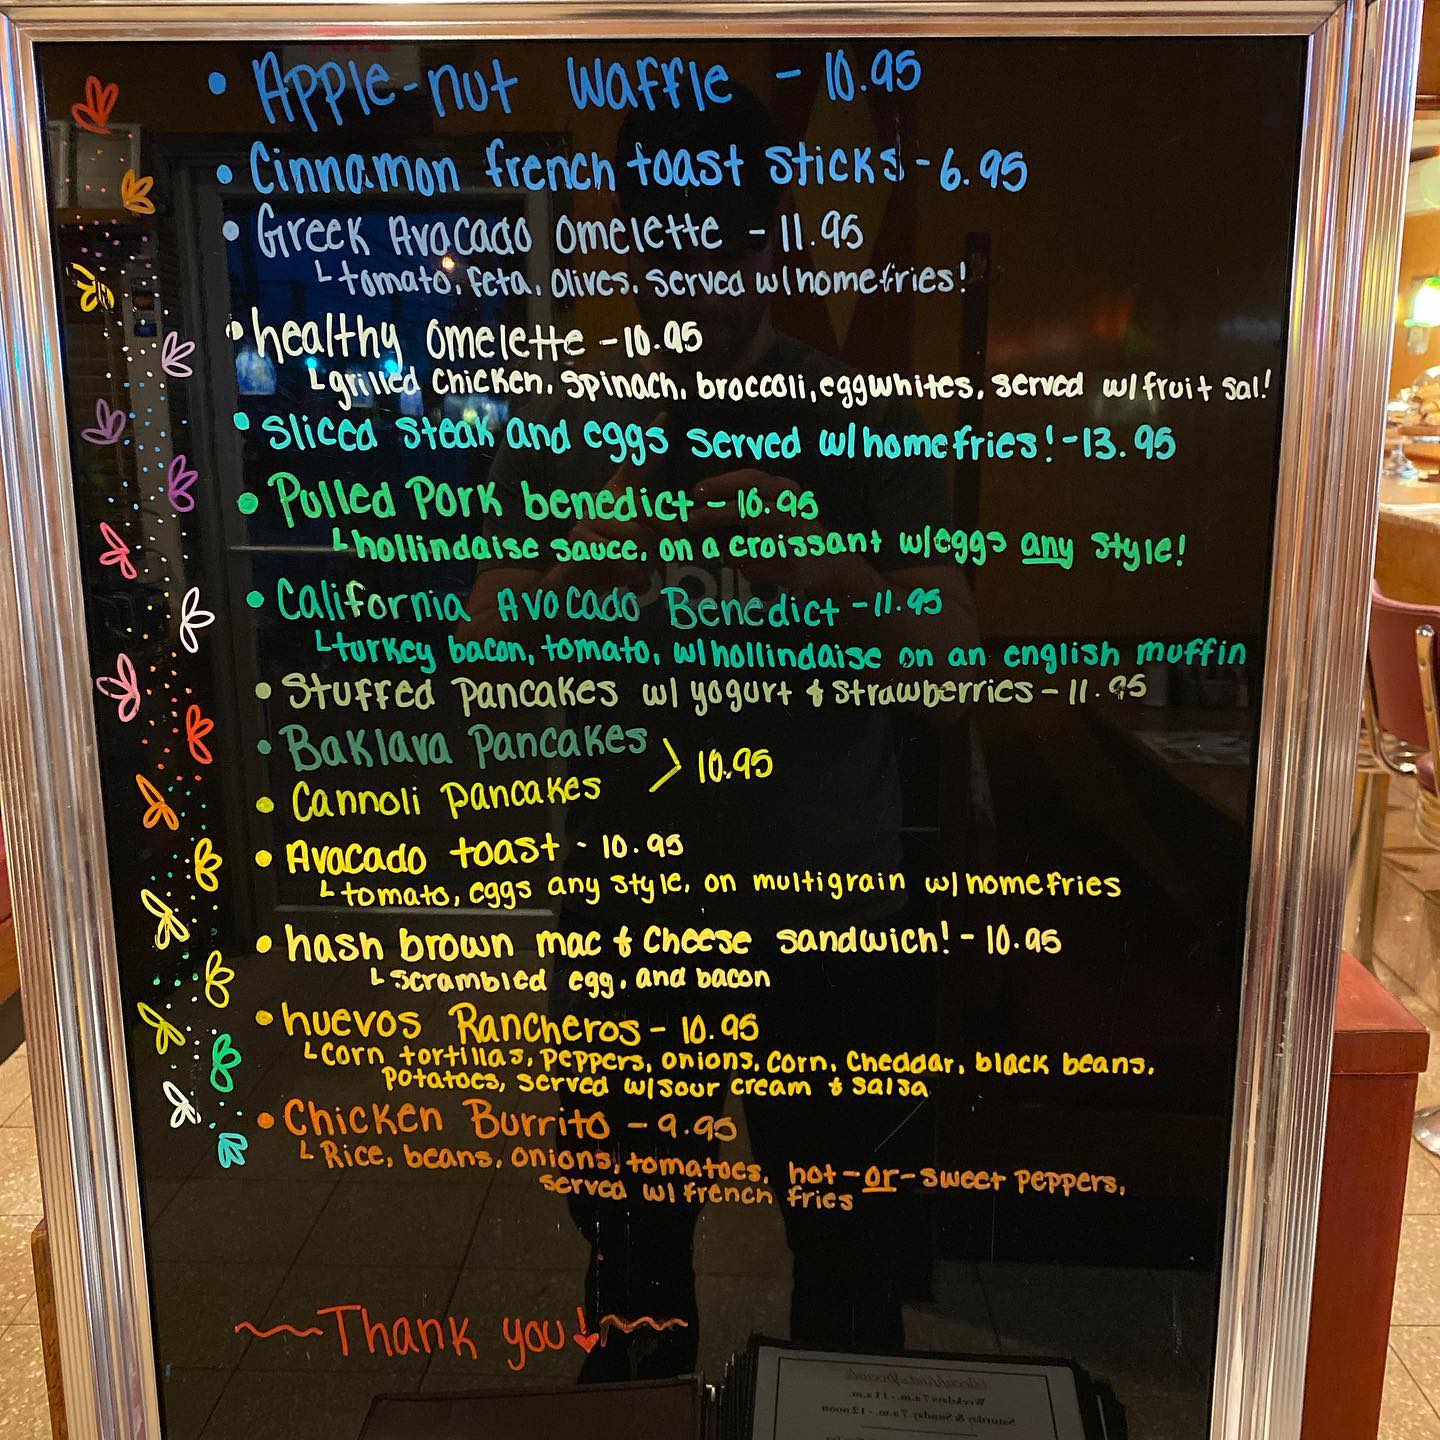 • Apple-nut waffle - 10.95
• Cinnamon french toast sticks - 6.95
• Greek Avocado omelette - 11.95
└tomato, feta, olives, served w/homefries!
• healthy omelette - 10.95
└grilled chicken, spinach, broccoli, eggwhites, served w/fruit sal!
• sliced steak and eggs served w/homefries! - 13.95
• Pulled Pork benedict - 10.95
└hollindaise sauce, on a croissant w/eggs any style!
• California Avocado Benedict - 11.95
└turkey bacon, tomato, w/hollindaise on an english muffin
• Stuffed pancakes w/ yogurt & strawberries - 11.95
• Baklava pancakes
> 10.95
• Cannoli pancakes
• Avocado toast - 10.95
└tomato, eggs any style, on multigrain w/homefries
• hash brown mac & cheese sandwich! - 10.95
└scrambled egg, and bacon
• huevos Rancheros - 10.95
└corn tortillas, peppers, onions, corn, cheddar, black beans,
potatoes, served w/sour cream & salsa
• Chicken Burrito - 9.95
└Rice, beans, onions, tomatoes, hot-or-sweet peppers,
served w/ french fries
~~Thank you!~~
Weekdays 7 a.m. - 11 a.m.
Saturday & Sunday 7 a.m. - 12 noon